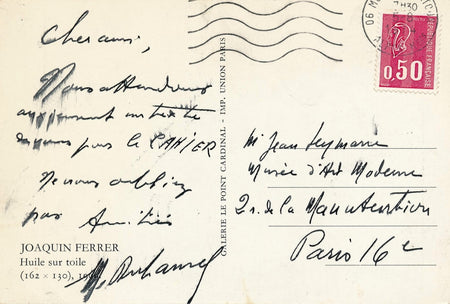 Cher ami,
Nous attendons
votre texte
pour le CAHIER
Ne nous oubliez
pas Amitiés
JOAQUIN FERRER
Huile sur toile
(162 × 130),
GALERIE LE POINT CARDINAL - IMP. UNION PARIS
06
H30
0,50
REPUBLIQUE FRANÇAISE
M. Jean Leymarie
Musée d'Art Moderne
2 r. de la Manutention
Paris 16e